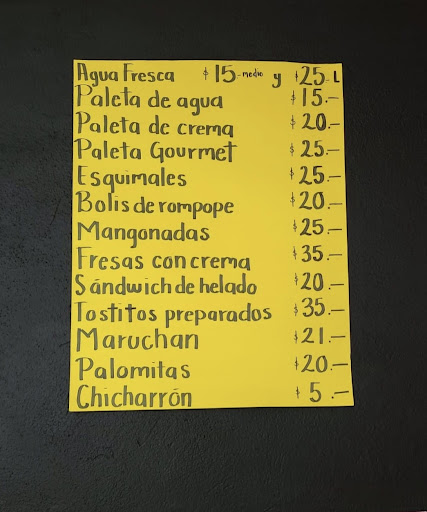 Agua Fresca $15-medio y $25-L
Paleta de agua $15.—
Paleta de crema $20.—
Paleta Gourmet $25.—
Esquimales $25.—
Bolis de rompope $20.—
Mangonadas $25.—
Fresas con crema $35.—
Sándwich de helado $20.—
Tostitos preparados $35.—
Maruchan $21.—
Palomitas $20.—
Chicharrón $5.—